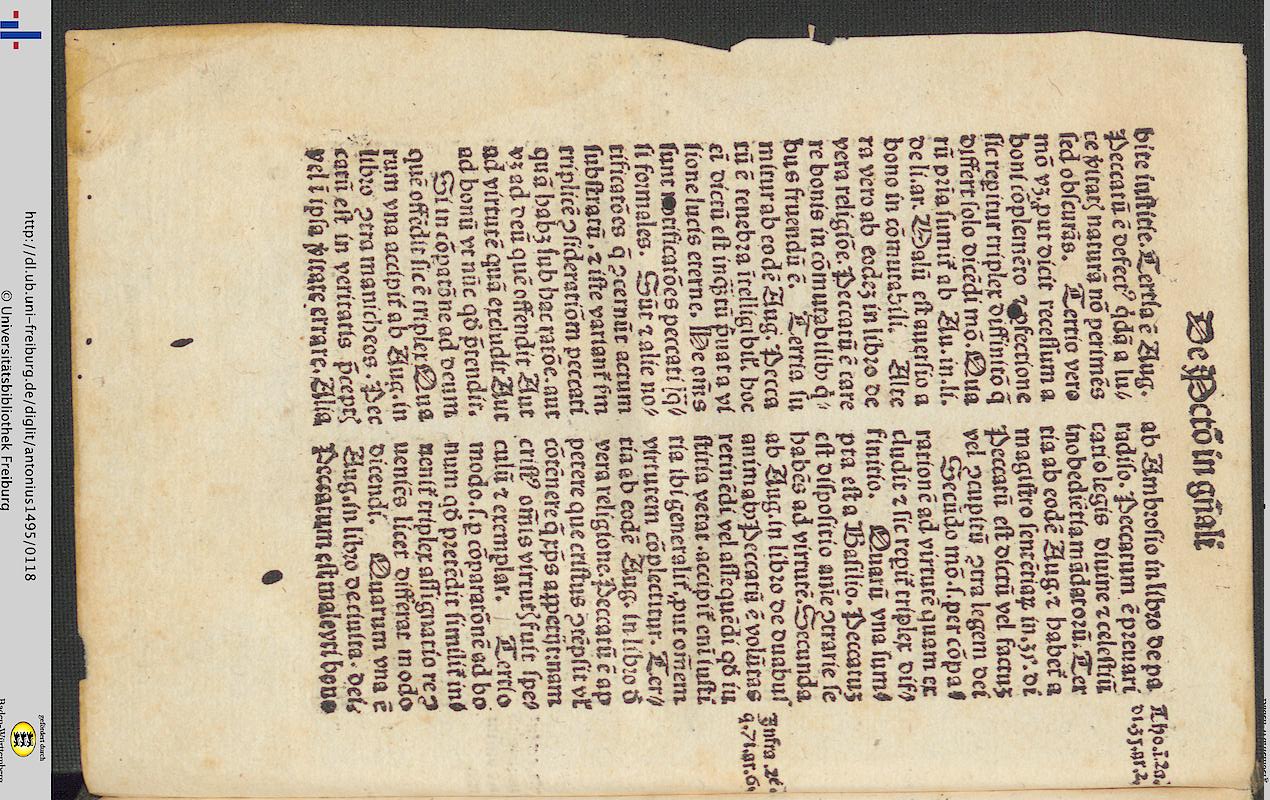 De Pctō in gn̄ali
bite iusticie. Tertia ē Aug.
Peccatū ē defect⁹ qdā a lu⸗
sed obscurās. Tertio vero
mō vꝫ. put dicit recessum a
boni cōplemēto ⁊ ꝑfectione
sic reꝑitur triplex diffinitō q̄
differt solo dicēdi mō. Quā
rū pria sumit̉ ab Au. in. li.
de li. ar. Malū est auersio a
bono in cōmutabili. Alte
ra vero ab eodeꝫ in libro de
vera religiōe. Peccatū ē care
re bonis in cōmutabilib⁹ q̇⸗
bus fruendū ē. Tertia su
mitur ab eodē Aug. Pecca
tū ē tenebra ītelligibil̓. hoc
ei̅ dictū est inq̄ꝫtū p̄uat a vi
sione lucis eterne. He om̄s
sunt notificatōes peccati sꝫ
si formales. Sūt ⁊ alie no⸗
tificatōes q̄ ꝯcernūt actum
substratū. ⁊ iste variant̉ ẜm
triplicē ꝯsideratiōm peccati
quā habꝫ sub hac ratōe. aut
vꝫ ad deū quē offendit Aut
ad virtutē quā excludit Aut
ad bonū vt nūc qd̓ p̄tendit.
Si in cōparōne ad deum
quē offēdit sic ē triplex Qua
rum vna accipit̉ ab Aug. in
libro ꝯtra manicheos. Pec
catū est in veritatis p̄ceptꝭ
vel ī ipsa v̓itate errare. Alia
ab Ambrosio in libro de pa
radiso. Peccatum ē p̄uari
catio legis diuine ⁊ celestiū
inobediētia mādatorū. Ter
tia ab eodē Aug. ⁊ habet̉ a
magistro sentētiaꝝ in. ij. di
Peccatū est dictū vel factuꝫ
vel ꝯcupitū ꝯtra legem dei
Secūdo mō. s. per cōpa⸗
rationē ad virtutē quam ex
cludit ⁊ sic reꝑit̉ triplex dif⸗
finitio. Quarū vna sum⸗
pta est a Basilio. Peccatuꝫ
est dispositio anīe ꝯtrarie se
habēs ad virtutē. Secunda
ab Aug. in libro de duabus
animab⁹ Peccatū ē volūtas
retinēdi vel assequēdi qd̓ iu
sticia vetat. accipit̉ eni̅ iusti
tia ibi generalit̓. put om̄em
virtutem cōplectitur. Ter⸗
tia ab eodē Aug. in libro d̓
vera religione. Peccatū ē ap
petere que cristus ꝯtēpsit vl̓
cōtēnere q̄ xp̄s appetijt: nam
crist⁹ om̄is virtutꝭ fuit spe⸗
culū ⁊ exemplar. Tertio
modo. s. ꝑ cōparatōnē ad bo
num qd̓ p̄terēdit similit̓ in⸗
uenit̉ triplex assignatio re ꝯ
ueniēs licet differāt modo
dicendi. Quarum vna ē
Aug. in libro de ciuita. dei
Peccatum est male vti bono
Tho. i. 2e
Infra. 2e.
q. 71. ar. 6.
http://dl.ub.uni-freiburg.de/diglit/antonius1495/0118
© Universitätsbibliothek Freiburg
gefördert durch
Baden-Württemberg